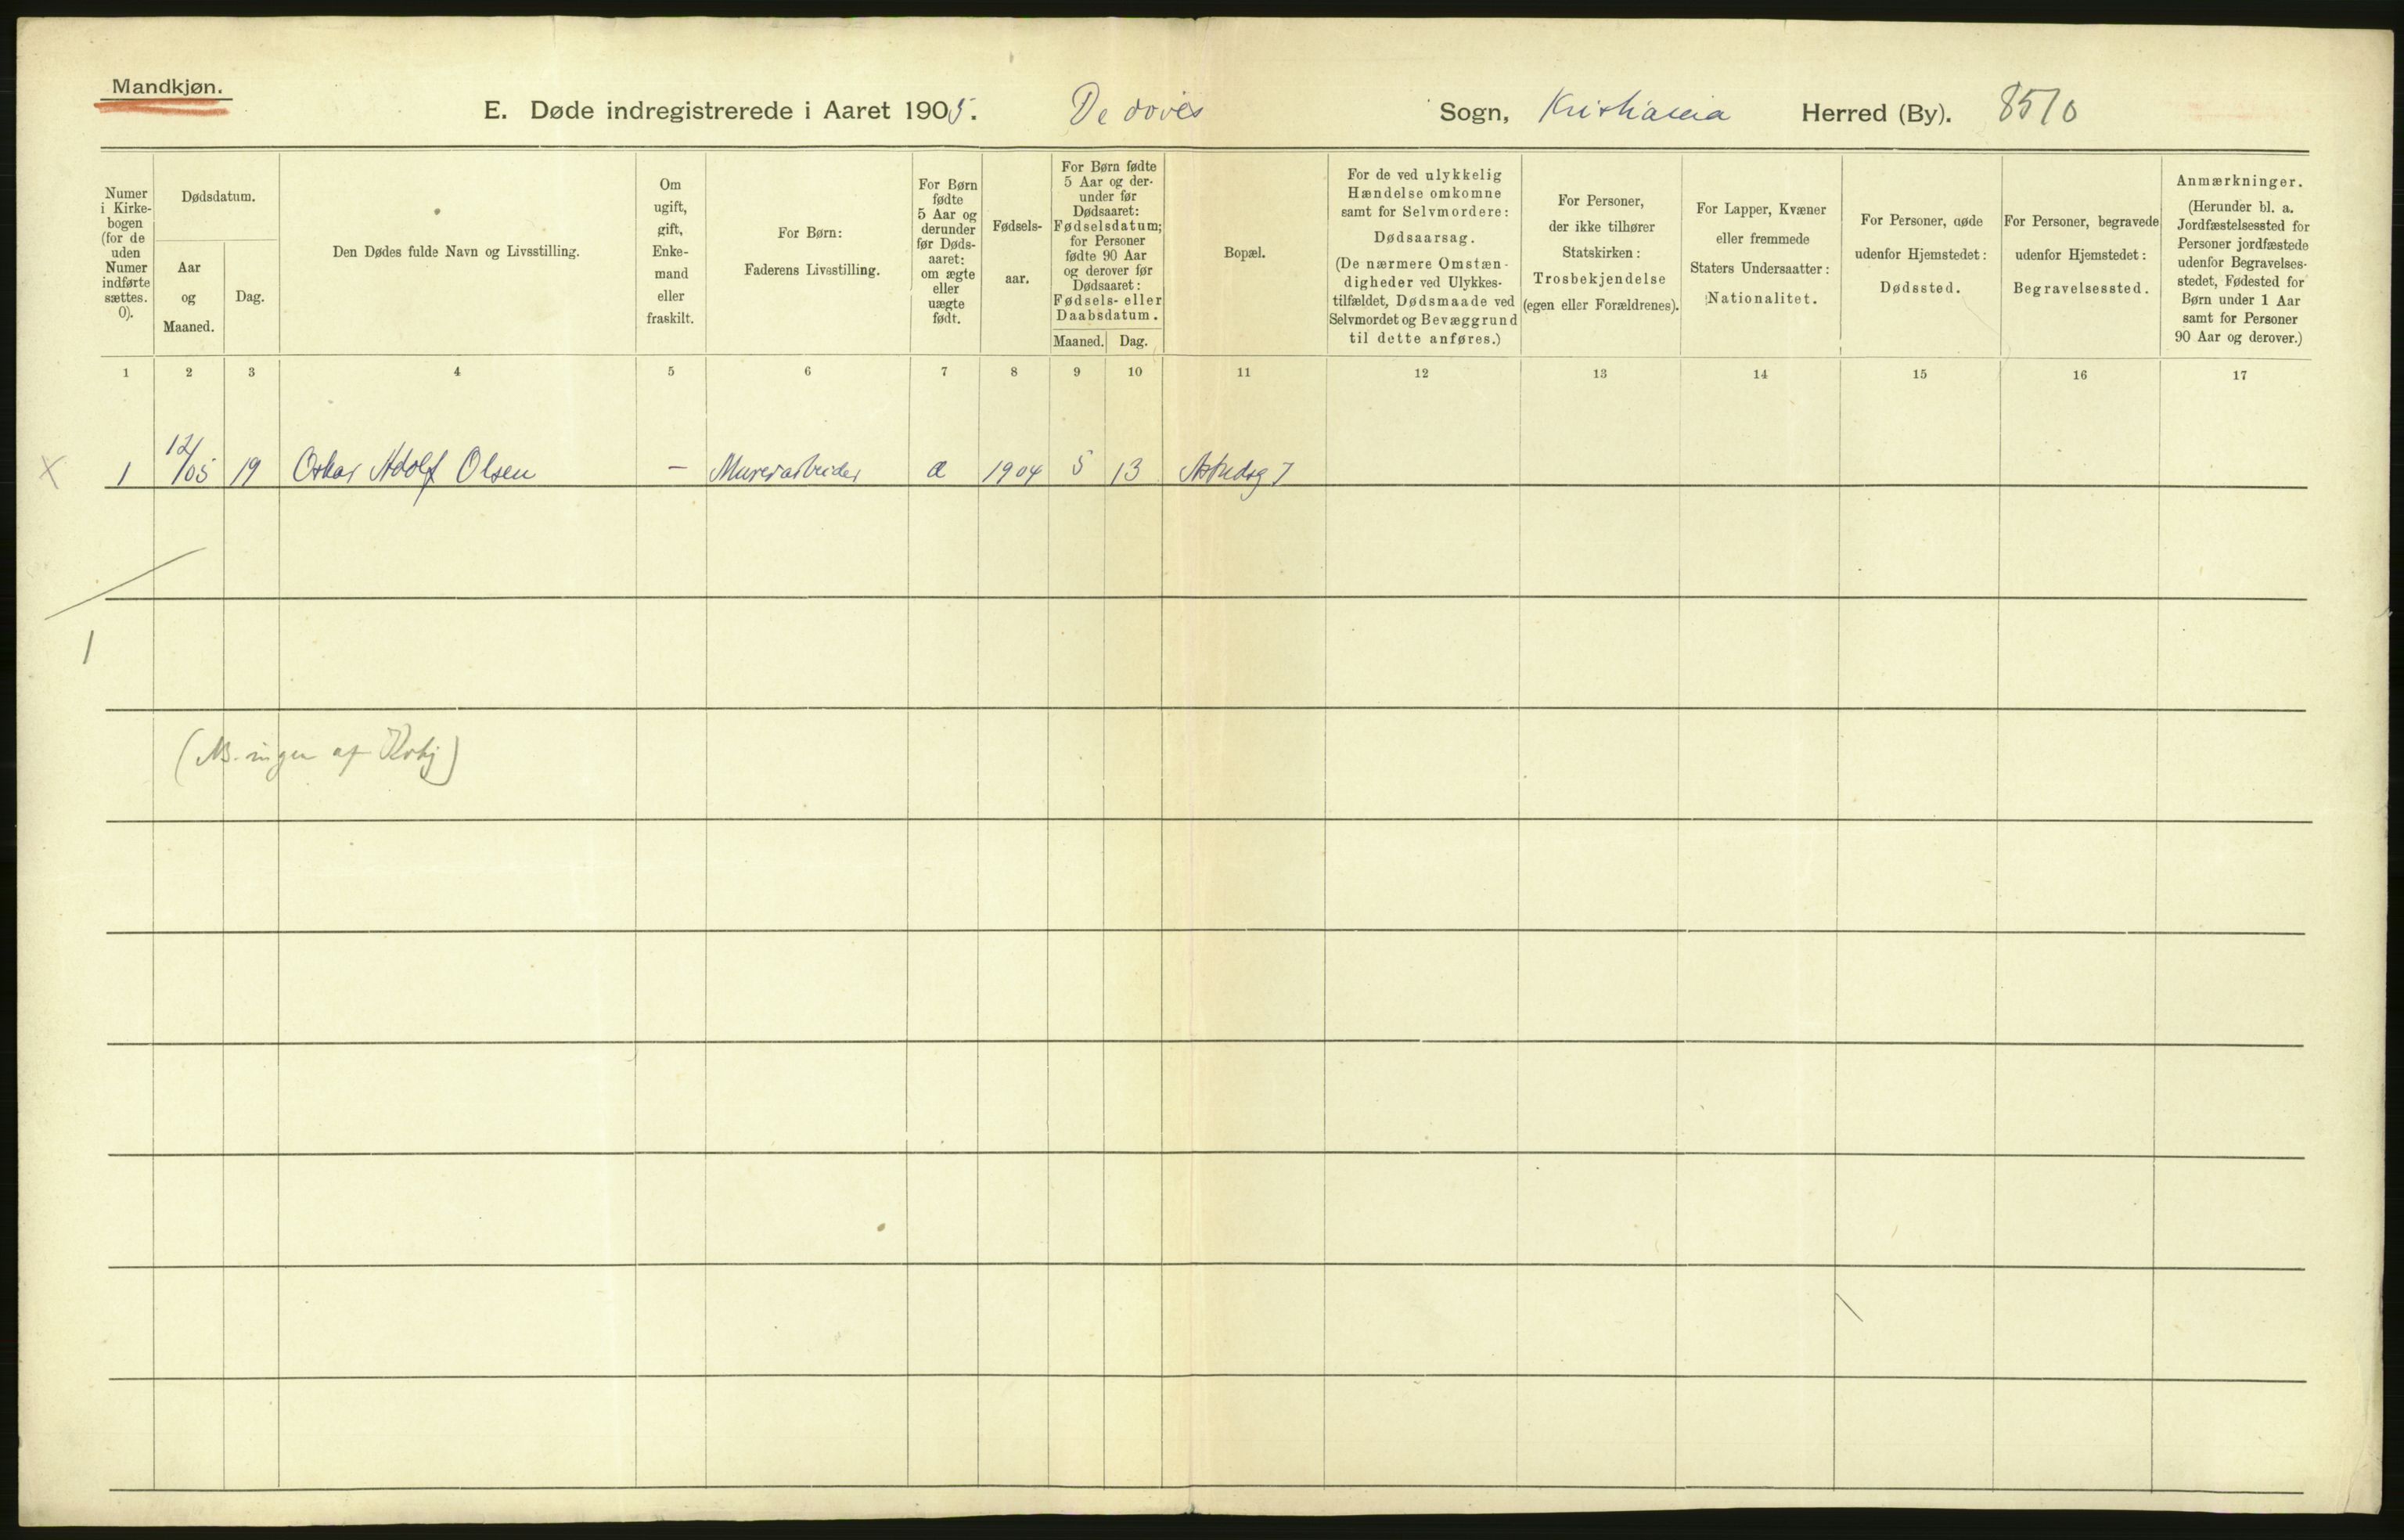 Mandkjøn.
E. Døde indregistrerede i Aaret 1905. De døves Sogn, Kristiania Herred (By). 8510
Numer
i Kirke-
bogen
(for de
uden
Numer
indførte
sættes.
0).
Dødsdatum.
Aar
og
Maaned.
Dag.
Den Dødes fulde Navn og Livsstilling.
Om
ugift,
gift,
Enke-
mand
eller
fraskilt.
For Børn:
Faderens Livsstilling.
For Børn
fødte
5 Aar og
derunder
før Døds-
aaret:
om ægte
eller
uægte
født.
Fødsels-
aar.
For Børn fødte
5 Aar og der-
under før
Dødsaaret:
Fødselsdatum;
for Personer
fødte 90 Aar
og derover før
Dødsaaret:
Fødsels- eller
Daabsdatum.
Maaned. Dag.
Bopæl.
For de ved ulykkelig
Hændelse omkomne
samt for Selvmordere:
Dødsaarsag.
(De nærmere Omstæn-
digheder ved Ulykkes-
tilfældet, Dødsmaade ved
Selvmordet og Bevæggrund
til dette anføres.)
For Personer,
der ikke tilhører
Statskirken:
Trosbekjendelse
(egen eller Forældrenes).
For Lapper, Kvæner
eller fremmede
Staters Undersaatter:
Nationalitet.
For Personer, døde
udenfor Hjemstedet:
Dødssted.
For Personer, begravede
udenfor Hjemstedet:
Begravelsessted.
Anmærkninger.
(Herunder bl. a.
Jordfæstelsessted for
Personer jordfæstede
udenfor Begravelses-
stedet, Fødested for
Børn under 1 Aar
samt for Personer
90 Aar og derover.)
1 2 3 4 5 6 7 8 9 10 11 12 13 14 15 16 17
x 1 12/05 19 Oskar Adolf Olsen – Murerarbeider æ 1904 5 13 7
1
(NB. ingen af